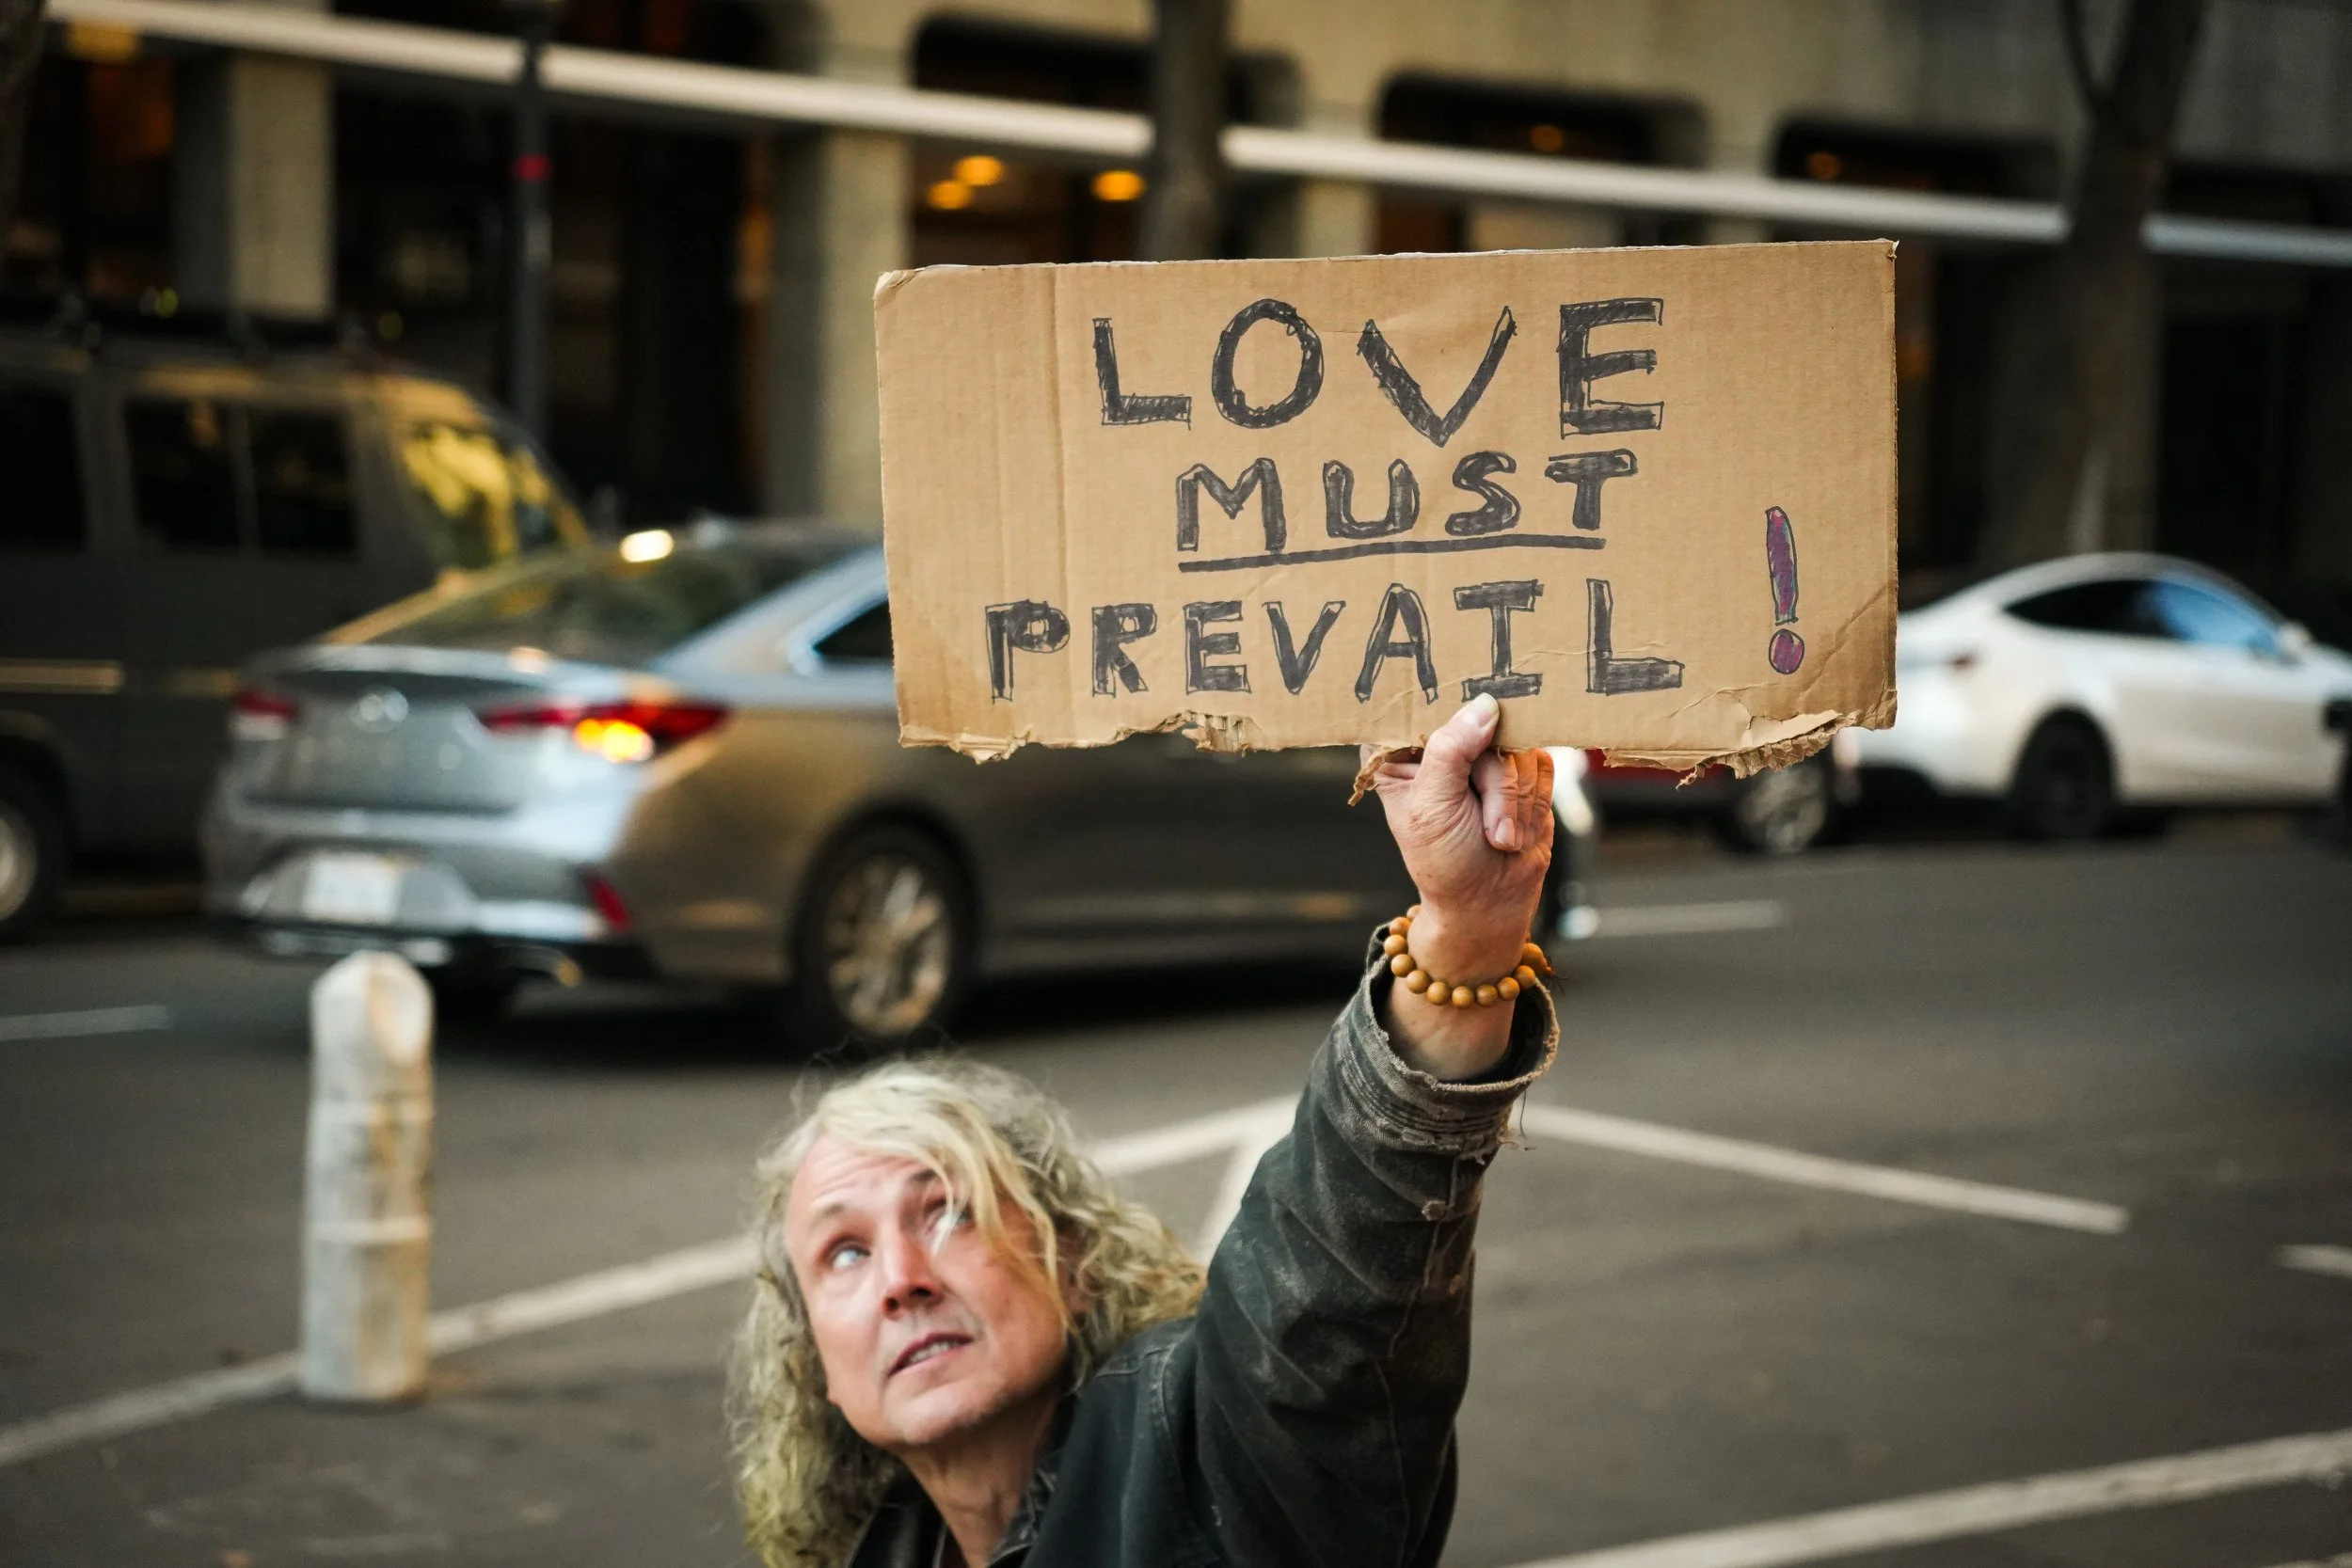 LOVE
MUST
PREVAIL!